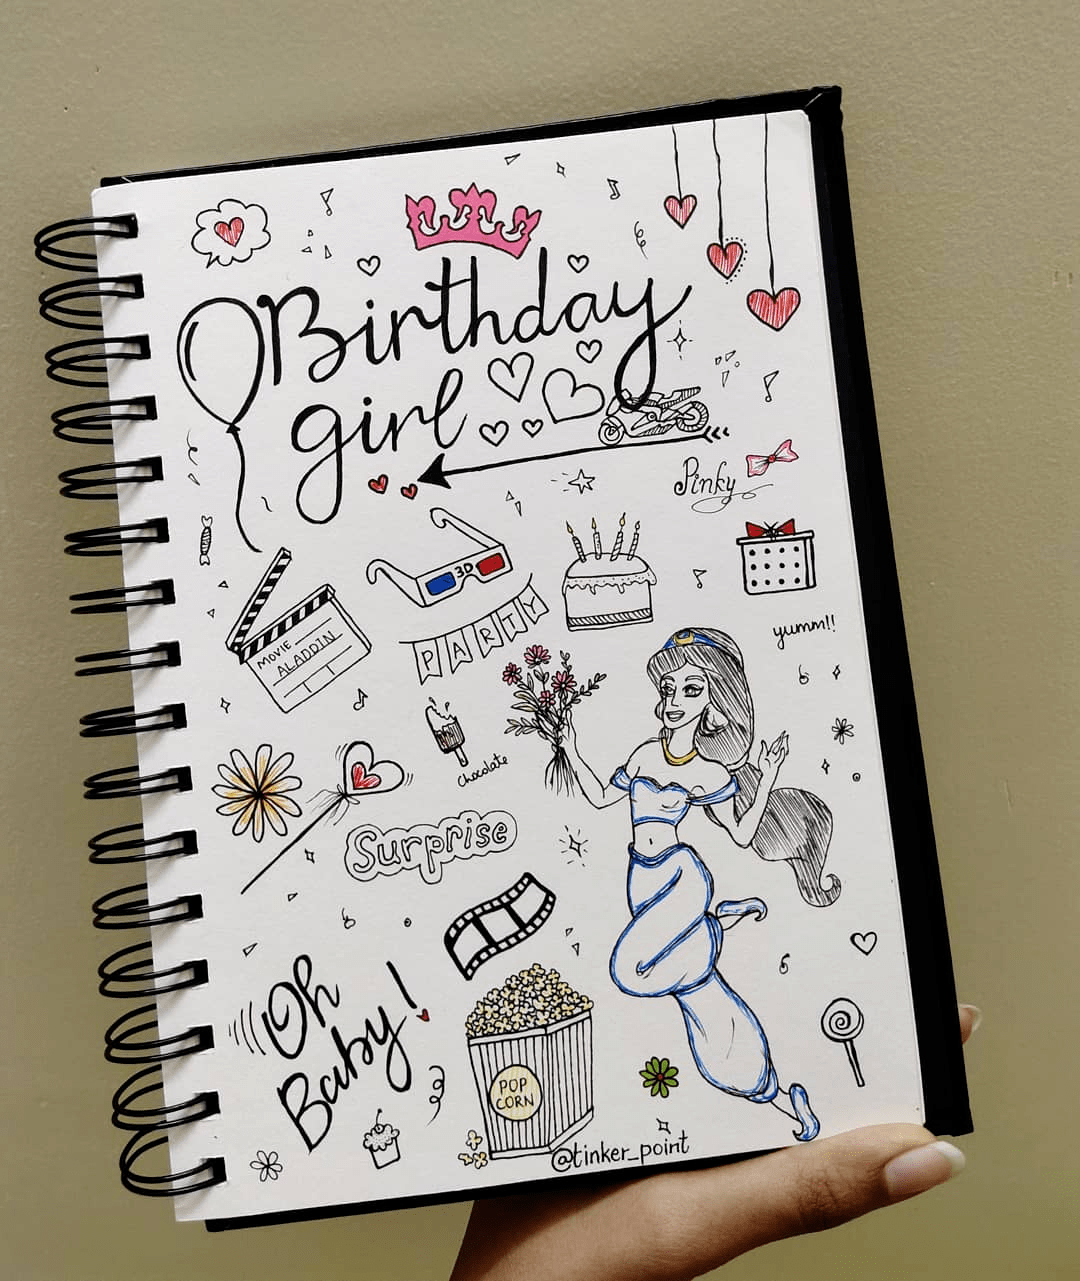 Birthday
girl
Pinky
3D
PARTY
MOVIE
ALADDIN
yumm!!
chocolate
Surprise
Oh
Baby!
POP
CORN
@tinker_point